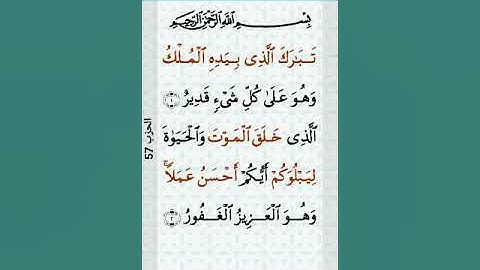 بِسْمِ اللَّهِ الرَّحْمَٰنِ الرَّحِيمِ
تَبَٰرَكَ ٱلَّذِى بِيَدِهِ ٱلْمُلْكُ
وَهُوَ عَلَىٰ كُلِّ شَىْءٍ قَدِيرٌ ١
ٱلَّذِى خَلَقَ ٱلْمَوْتَ وَٱلْحَيَوٰةَ
لِيَبْلُوَكُمْ أَيُّكُمْ أَحْسَنُ عَمَلًاۚ
وَهُوَ ٱلْعَزِيزُ ٱلْغَفُورُ ٢
الحزب 57